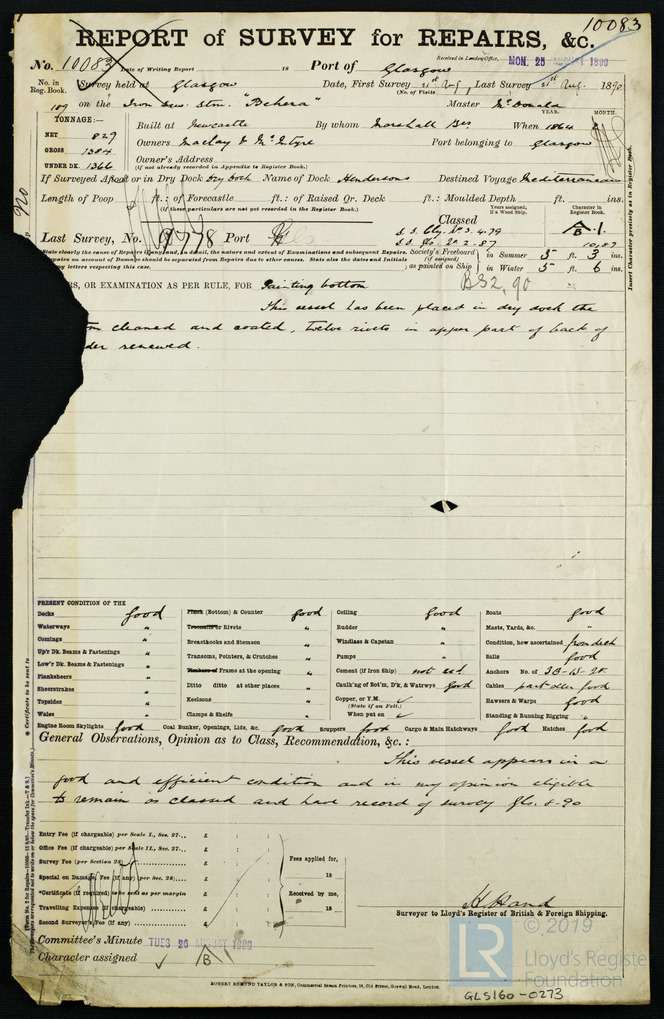 10083
REPORT of SURVEY for REPAIRS, &c.
No. 10083 Date of Writing Report 18 Port of Glasgow Received in London Office, MON. 25 AUGUST 1890
No. in Reg. Book. Survey held at Glasgow Date, First Survey 21st Aug, Last Survey 21st Aug. 1890
(No. of Visits
189 on the Iron Screw Stmr. "Behera" Master McDonald
TONNAGE:— YEAR. MONTH.
NET 829 Built at Newcastle By whom Marshall Bros When 1864
GROSS 1384 Owners Maclay & McIntyre Port belonging to Glasgow
UNDER DK. 1366 Owner's Address
(If not already recorded in Appendix to Register Book.)
If Surveyed Afloat or in Dry Dock Dry Dock Name of Dock Hendersons Destined Voyage Mediterranean
Length of Poop ft.: of Forecastle ft.: of Raised Qr. Deck ft.: Moulded Depth ft. ins.
(If these particulars are not yet recorded in the Register Book.)
Years assigned, if a Wood Ship. Character in Register Book.
Classed A1
Last Survey, No. 9778 Port
S.S. Gly. No 3. 4.79
S.S. No. 2. 2.87 10,87
Society's Freeboard (if assigned) as painted on Ship in Summer 5 ft. 3 ins.
in Winter 5 ft. 6 ins.
BS2, 90
Insert Character precisely as in Register Book.
S, OR EXAMINATION AS PER RULE, FOR Painting bottom
This vessel has been placed in dry dock the
cleaned and coated, twelve rivets in upper part of back of
der renewed.
PRESENT CONDITION OF THE
Decks Good
Waterways "
Comings "
Up'r Dk. Beams & Fastenings "
Low'r Dk. Beams & Fastenings "
Planksheers "
Sheerstrakes "
Topsides "
Wales "
Plank (Bottom) & Counter Good
Treenails or Rivets "
Breasthooks and Stemson "
Transoms, Pointers, & Crutches "
Timbers of Frame at the opening "
Ditto ditto at other places "
Keelsons "
Clamps & Shelfs "
Ceiling Good
Rudder "
Windlass & Capstan "
Pumps "
Cement (if Iron Ship) not exd.
Caulk'ng of Bot'm, D'k, & Watrwys Good
Copper, or Y.M.
(State if on Felt.)
When put on
Boats Good
Masts, Yards, &c. "
Condition, how ascertained from deck
Sails Good
Anchors No. of 3B-1S-2K
Cables Good
Hawsers & Warps Good
Standing & Running Rigging "
Engine Room Skylights Good Coal Bunker, Openings, Lids, &c. Good Scuppers Good Cargo & Main Hatchways Good Hatches Good
General Observations, Opinion as to Class, Recommendation, &c.:
This vessel appears in a
good and efficient condition and in my opinion eligible
to remain as classed and have record of survey Gls. 8-90
Entry Fee (if chargeable) per Scale I., Sec. 27... £ : :
Office Fee (if chargeable) per Scale II., Sec. 27... £ : :
Survey Fee (per Section 28) £ : :
Special or Damage Fee (if any) (per Sec. 28) £ : :
*Certificate (if required) to be sent as per margin £ : :
Travelling Expenses (if chargeable) £ : :
Second Surveyor's Fee (if any) £ : :
Fees applied for,
18
Received by me,
18
H. Hand
Surveyor to Lloyd's Register of British & Foreign Shipping.
Committee's Minute TUES 26 AUGUST 1890
Character assigned A1
ROBERT EDMUND TAYLOR & SON, Commercial Steam Printers, 19, Old Street, Goswell Road, London.
© 2019
LR Lloyd's Register
Foundation
GLS160-0273